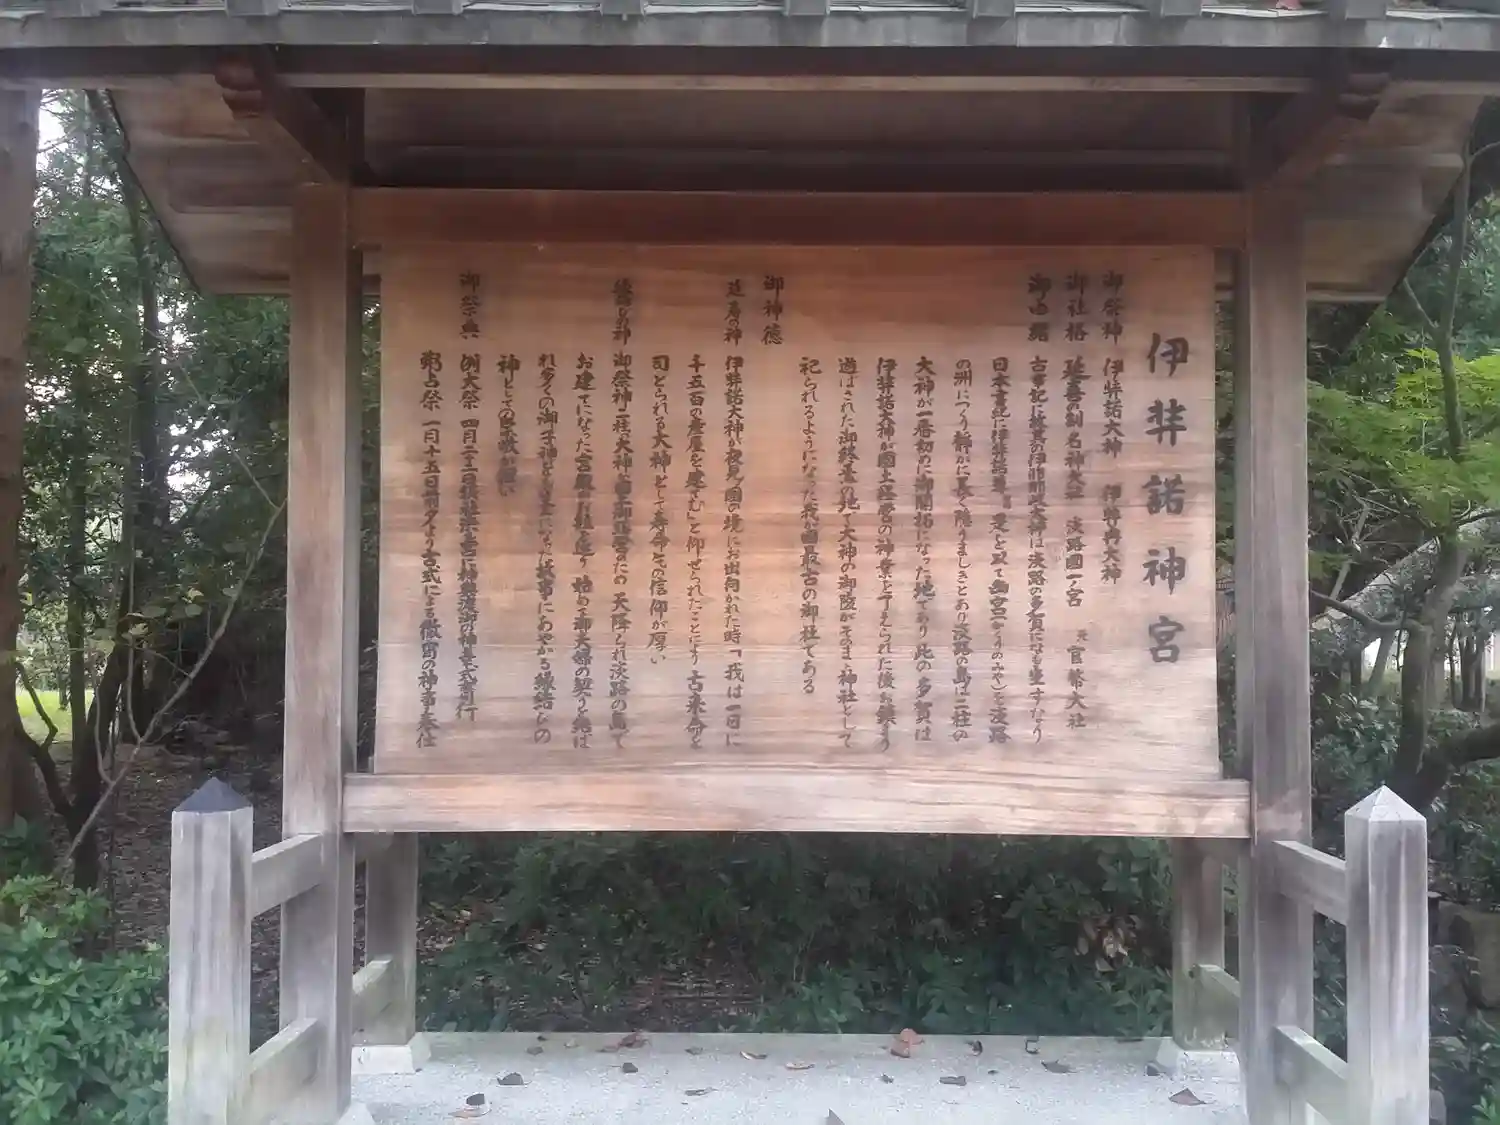 伊弉諾神宮
御祭神 伊弉諾大神 伊弉冉大神
御社格 延喜の制名神大社 淡路國一ノ宮 元官幣大社
御由緒 古事記に故其の伊耶那岐大神は淡路の多賀になも坐すなり
日本書紀に伊弉諾尊 是を以て幽宮(かくりのみや)を淡路
の洲につくり静かに長く隠れましきとあり淡路の島は二柱の
大神が一番初めに御開拓になった地であり此の多賀は
伊弉諾大神が國土経営の神業を了えられた後お鎮まり
遊ばされた御終焉の地で大神の御陵がそのまゝ神社として
祀られるようになった我が國最古の御社である
御神徳
延寿の神 伊弉諾大神が夜見ノ國の境にお出向かれた時「我は一日に
千五百の産屋を建てむ」と仰せられたことにより古来命を
司どられる大神として寿命の信仰が厚い
縁結びの神 御祭神二柱の大神は國土御経営のため天降られ淡路の島で
お建てになった宮殿の御柱を廻り始めて御夫婦の契りを結ば
れ多くの御子神をお生みになった故事にあやかる縁結びの
神としての崇敬が篤い
御祭典 例大祭 四月二十二日 神輿渡御の神幸式斎行
粥占祭 一月十五日前夕より古式による徹宵の神事奉仕